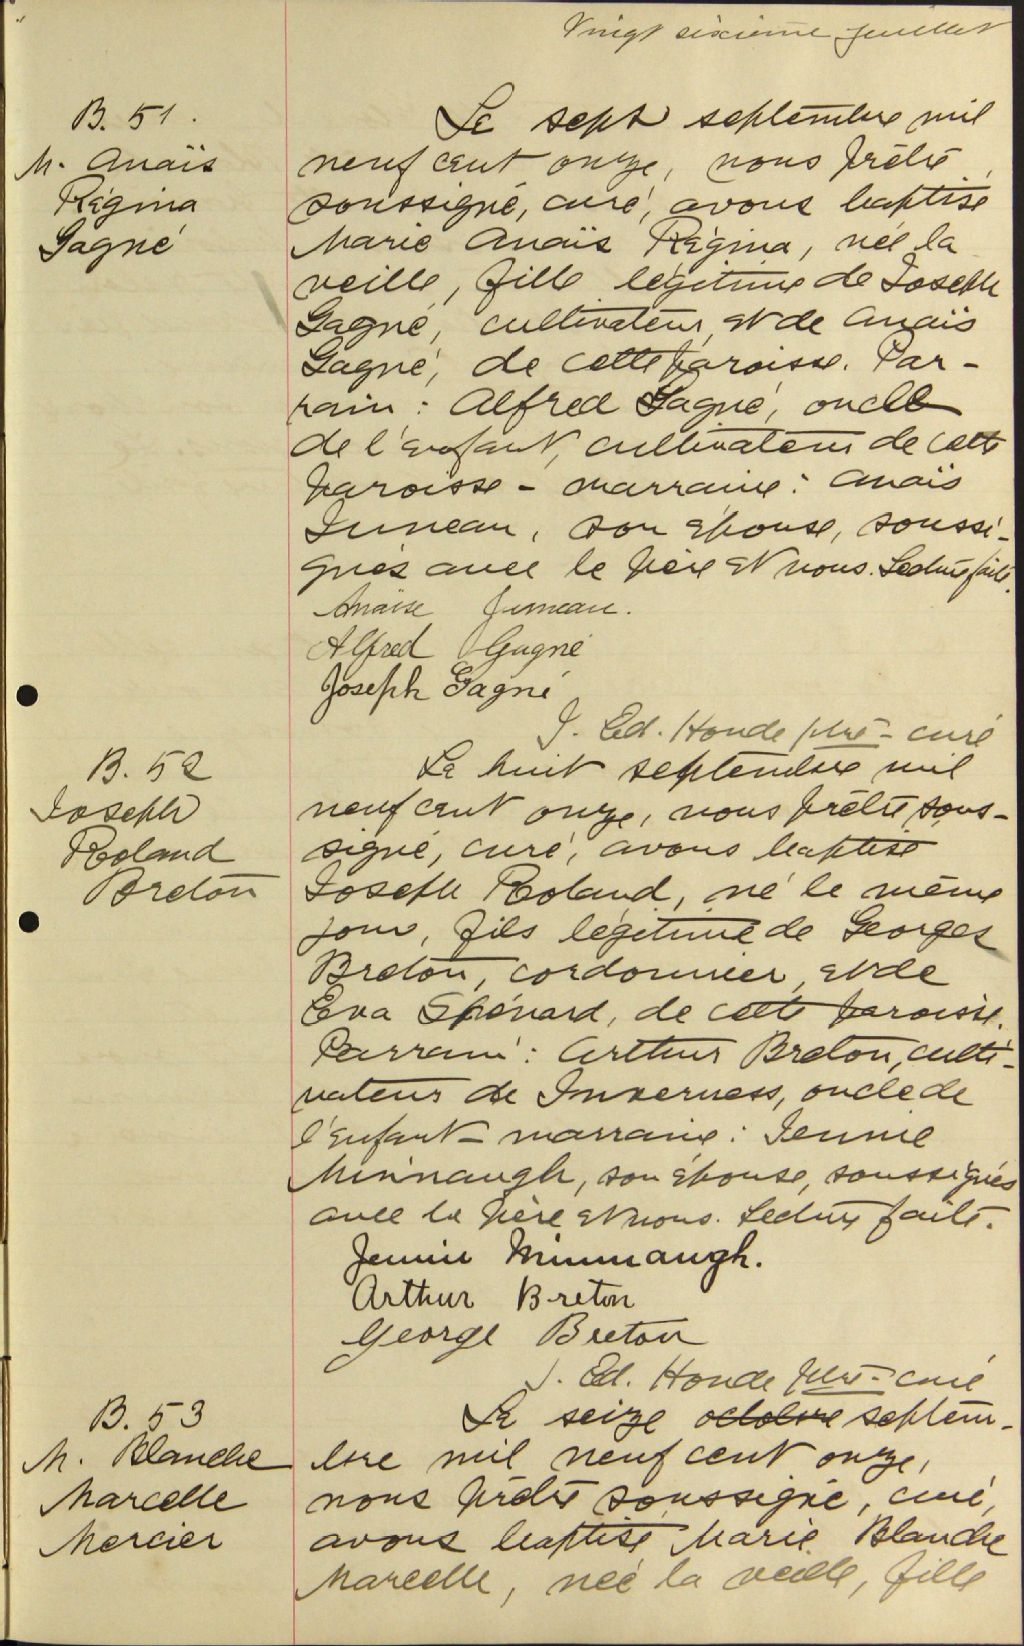 Vingt sixième feuillet
B. 51.
M. Anaïs
Régina
Gagné
Le sept septembre mil
neuf cent onze, nous prêtre
soussigné, curé, avons baptisé
Marie Anaïs Régina, née la
veille, fille légitime de Joseph
Gagné, cultivateur, et de Anaïs
Gagné, de cette paroisse. Par-
rain : Alfred Gagné, oncle
de l'enfant, cultivateur de cette
paroisse - marraine : Anaïs
Juneau, son épouse, soussi-
gnés avec le père et nous. Lecture faite.
Anaïse Juneau.
Alfred Gagné
Joseph Gagné
J. Ed. Houde ptre - curé
B. 52
Joseph
Roland
Breton
Le huit septembre mil
neuf cent onze, nous prêtre sous-
signé, curé, avons baptisé
Joseph Roland, né le même
jour, fils légitime de Georges
Breton, cordonnier, et de
Eva Shénard, de cette paroisse.
Parrain : Arthur Breton, culti-
vateur de Inverness, oncle de
l'enfant - marraine : Jennie
Minnaugh, son épouse, soussignés
avec le père et nous. Lecture faite.
Jennie Minnaugh.
Arthur Breton
George Breton
J. Ed. Houde ptre - curé
B. 53
M. Blanche
Marcelle
Mercier
Le seize octobre septem-
bre mil neuf cent onze,
nous prêtre soussigné, curé,
avons baptisé Marie Blanche
Marcelle, née la veille, fille